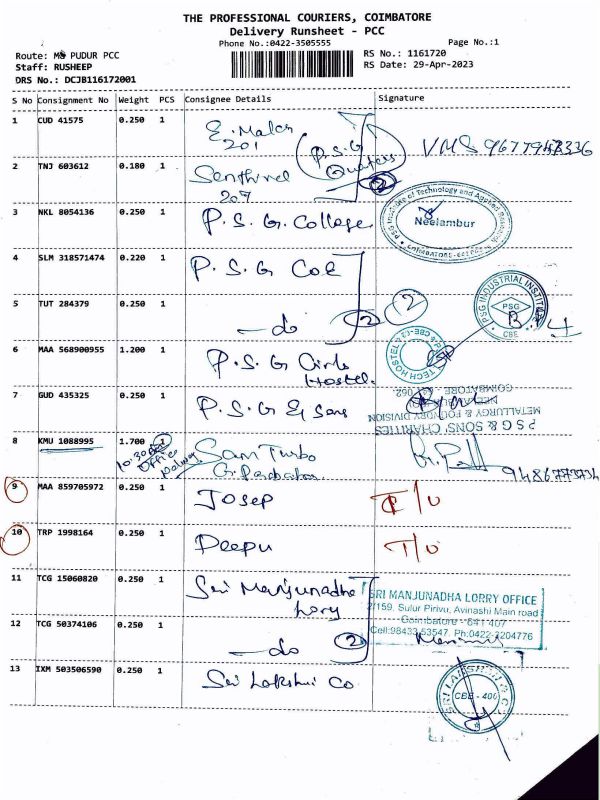 THE PROFESSIONAL COURIERS, COIMBATORE
Delivery Runsheet - PCC
Phone No.:0422-3505555
Page No.:1
Route: MS PUDUR PCC
RS No.: 1161720
Staff: RUSHEEP
RS Date: 29-Apr-2023
DRS No.: DCJB116172001
S No Consignment No Weight PCS Consignee Details Signature
1 CUD 41575 0.250 1
201
P.S.G Quaters
VMS 9677947336
2 TNJ 603612 0.180 1 Senthivel
207
2
3 NKL 8054136 0.250 1 P.S.G. College
PSG Institute of Technology and Applied Research
Neelambur
4 SLM 318571474 0.220 1 P.S.G CoE
PSG INDUSTRIAL INSTITUTE
PSG
CBE
5 TUT 284379 0.250 1 - do 2
2
6 MAA 568900955 1.200 1 P.S.G Girls
Hostel.
TECH HOSTEL
7 GUD 435325 0.250 1 P.S.G & Sons
PSG & SONS' CHARITIES
METALLURGY & FOUNDRY DIVISION
COIMBATORE
8 KMU 1088995 1.700 1 Sam Turbo
10.30am
Office
9 MAA 859705972 0.250 1 Josep
10 TRP 1998164 0.250 1 Deepu T/U
11 TCG 15060820 0.250 1 Sri Manjunadha
Lorry
SRI MANJUNADHA LORRY OFFICE
2/159, Sulur Pirivu, Avinashi Main road
Coimbatore - 641 407
Cell:98433 53547, Ph:0422-2204776
12 TCG 50374106 0.250 1 - do 2
13 IXM 503506590 0.250 1 Sri Lakshmi Co